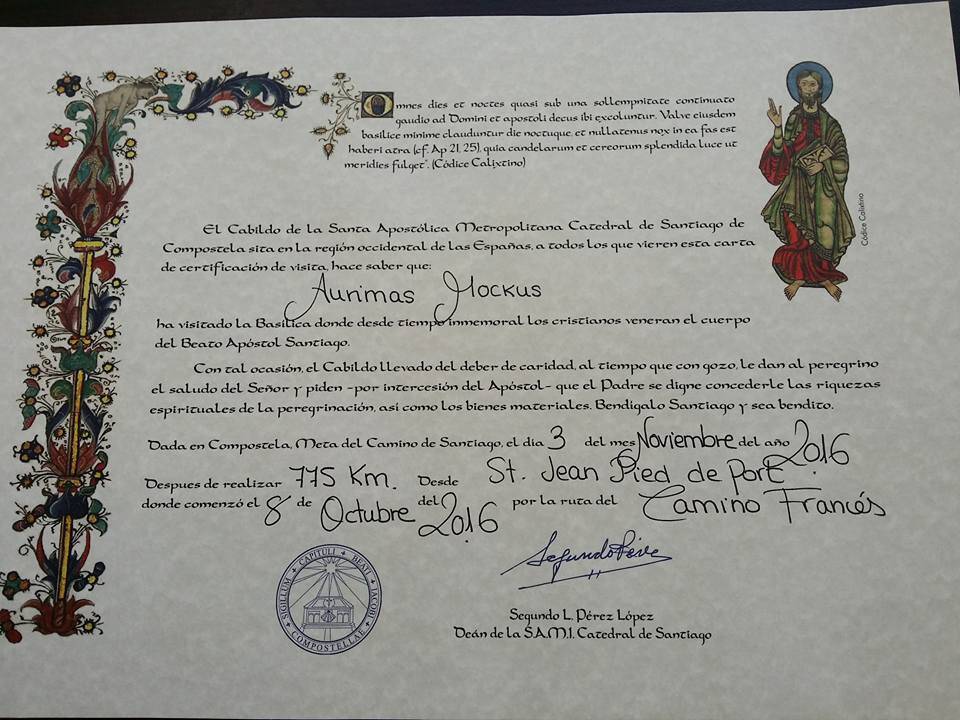 Omnes dies et noctes quasi sub una sollempnitate continuato
gaudio ad Domini et apostoli decus ibi excoluntur. Valve eiusdem
basilice minime clauduntur die noctuque, et nullatenus nox in ea fas est
haberi atra (cf. Ap 21, 25), quia candelarum et cereorum splendida luce ut
meridies fulget". (Códice Calixtino)
Códice Calixtino
El Cabildo de la Santa Apostólica Metropolitana Catedral de Santiago de
Compostela sita en la región occidental de las Españas, a todos los que vieren esta carta
de certificación de visita, hace saber que:
Aurimas Mockus
ha visitado la Basílica donde desde tiempo inmemorial los cristianos veneran el cuerpo
del Beato Apóstol Santiago.
Con tal ocasión, el Cabildo llevado del deber de caridad, al tiempo que con gozo, le dan al peregrino
el saludo del Señor y piden -por intercesión del Apóstol- que el Padre se digne concederle las riquezas
espirituales de la peregrinación, así como los bienes materiales. Bendígalo Santiago y sea bendito.
Dada en Compostela, Meta del Camino de Santiago, el día 3 del mes Noviembre del año 2016
Despues de realizar 775 Km. Desde St. Jean Pied de Port
donde comenzó el 8 de Octubre del 2016 por la ruta del Camino Francés
SIGILLUM CAPITULI BEATI JACOBI
COMPOSTELLAE
Segundo Pérez
Segundo L. Pérez López
Deán de la S.A.M.I. Catedral de Santiago